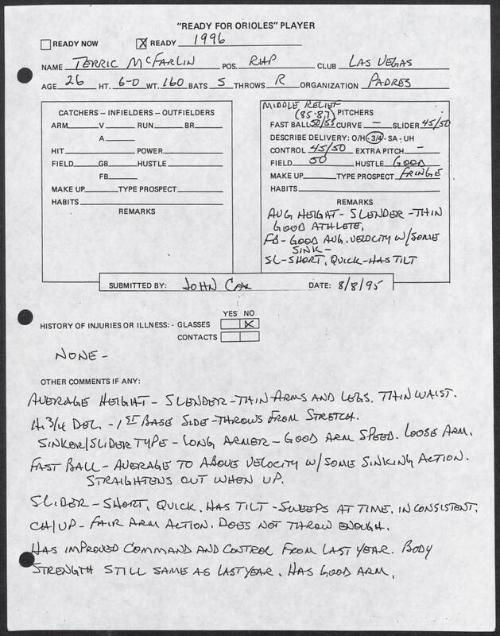 "READY FOR ORIOLES" PLAYER
READY NOW X READY 1996
NAME TERRIC McFARLIN POS. RHP CLUB LAS VEGAS
AGE 26 HT. 6-0 WT. 160 BATS S THROWS R ORGANIZATION PADRES
CATCHERS – INFIELDERS – OUTFIELDERS
ARM V RUN BR
A
HIT POWER
FIELD GB HUSTLE
FB
MAKE UP TYPE PROSPECT
HABITS
REMARKS
MIDDLE RELIEF
(85-87) PITCHERS
FAST BALL 50/55 CURVE — SLIDER 45/50
DESCRIBE DELIVERY: O/H - 3/4 - SA - UH
CONTROL 45/50 EXTRA PITCH —
FIELD 50 HUSTLE GOOD
MAKE UP TYPE PROSPECT FRINGE
HABITS
REMARKS
AVG HEIGHT - SLENDER - THIN
GOOD ATHLETE.
FB - GOOD AVG. VELOCITY W/SOME
SINK -
SL - SHORT, QUICK - HAS TILT
SUBMITTED BY: JOHN COX DATE: 8/8/95
YES NO
HISTORY OF INJURIES OR ILLNESS: - GLASSES X
CONTACTS
NONE -
OTHER COMMENTS IF ANY:
AVERAGE HEIGHT - SLENDER - THIN ARMS AND LEGS. THIN WAIST.
H. 3/4 DEL. - 1ST BASE SIDE - THROWS FROM STRETCH.
SINKER/SLIDER TYPE - LONG ARMER - GOOD ARM SPEED. LOOSE ARM.
FAST BALL - AVERAGE TO ABOVE VELOCITY W/SOME SINKING ACTION.
STRAIGHTENS OUT WHEN UP.
SLIDER - SHORT, QUICK, HAS TILT - SWEEPS AT TIME, INCONSISTENT.
CH/UP - FAIR ARM ACTION. DOES NOT THROW ENOUGH.
HAS IMPROVED COMMAND AND CONTROL FROM LAST YEAR. BODY
STRENGTH STILL SAME AS LAST YEAR. HAS GOOD ARM.